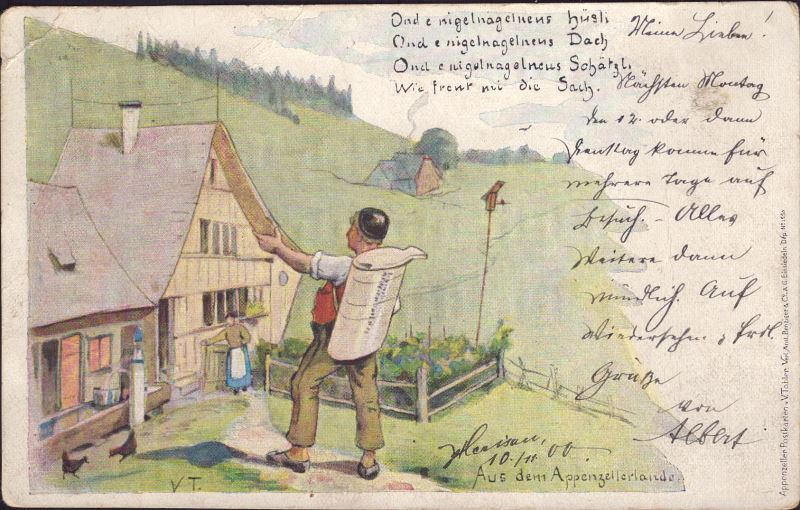 Ond e nigelnagelneus Hüsli
Ond e nigelnagelneus Dach
Ond e nigelnagelneus Schätzli
Wie freut mi die Sach.
Meine Lieben!
Nächsten Montag
den 12. oder dann
Dienstag komme für
mehrere Tage auf
Besuch. - Alles
Weitere dann
mündlich. Auf
Wiedersehen & frdl.
Grüße
von
Albert
Herisau,
10./11. 00.
Aus dem Appenzellerlande.
V T.
Appenzeller Postkarten v. V. Tobler. Verl. Benziger & Co. A.G. Einsiedeln. Dép. No